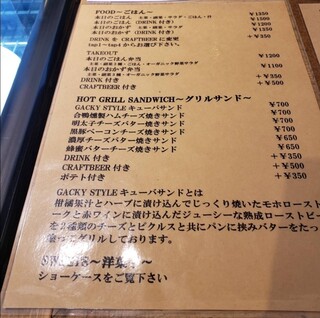 FOOD〜ごはん〜
本日のごはん 主菜・副菜・サラダ・ごはん・汁 ¥1350
本日のごはん (DRINK 付き) ¥1500
本日のおかず 主菜・副菜・サラダ ¥1200
本日のおかず (DRINK 付き) ¥1350
DRINK を CRAFTBEER に変更 +¥350
tap1〜tap4 からお選び下さい。
TAKEOUT
本日のごはん弁当 ¥1200
主菜・副菜3種・オーガニック野菜サラダ
本日のおかず弁当 ¥1100
主菜・副菜3種・オーガニック野菜サラダ
DRINK 付き +¥350
CRAFTBEER 付き +¥500
HOT GRILL SANDWICH〜グリルサンド〜
GACKY STYLE キューバサンド ¥700
合鴨燻製ハムチーズ焼きサンド ¥700
明太子チーズバター焼きサンド ¥700
黒豚ベーコンチーズ焼きサンド ¥700
濃厚チーズバター焼きサンド ¥650
蜂蜜バターチーズ焼きサンド ¥650
DRINK 付き +¥350
CRAFTBEER 付き +¥500
ポテト付き +¥350
GACKY STYLE キューバサンドとは
柑橘果汁とハーブに漬け込んでじっくり焼いたモホロースト
ークと赤ワインに漬け込んだジューシーな熟成ローストビー
を2種類のチーズとピクルスと共にパンに挟みバターをたっ
塗ってグリルしております。
SWEETS〜洋菓子〜
ショーケースをご覧下さい